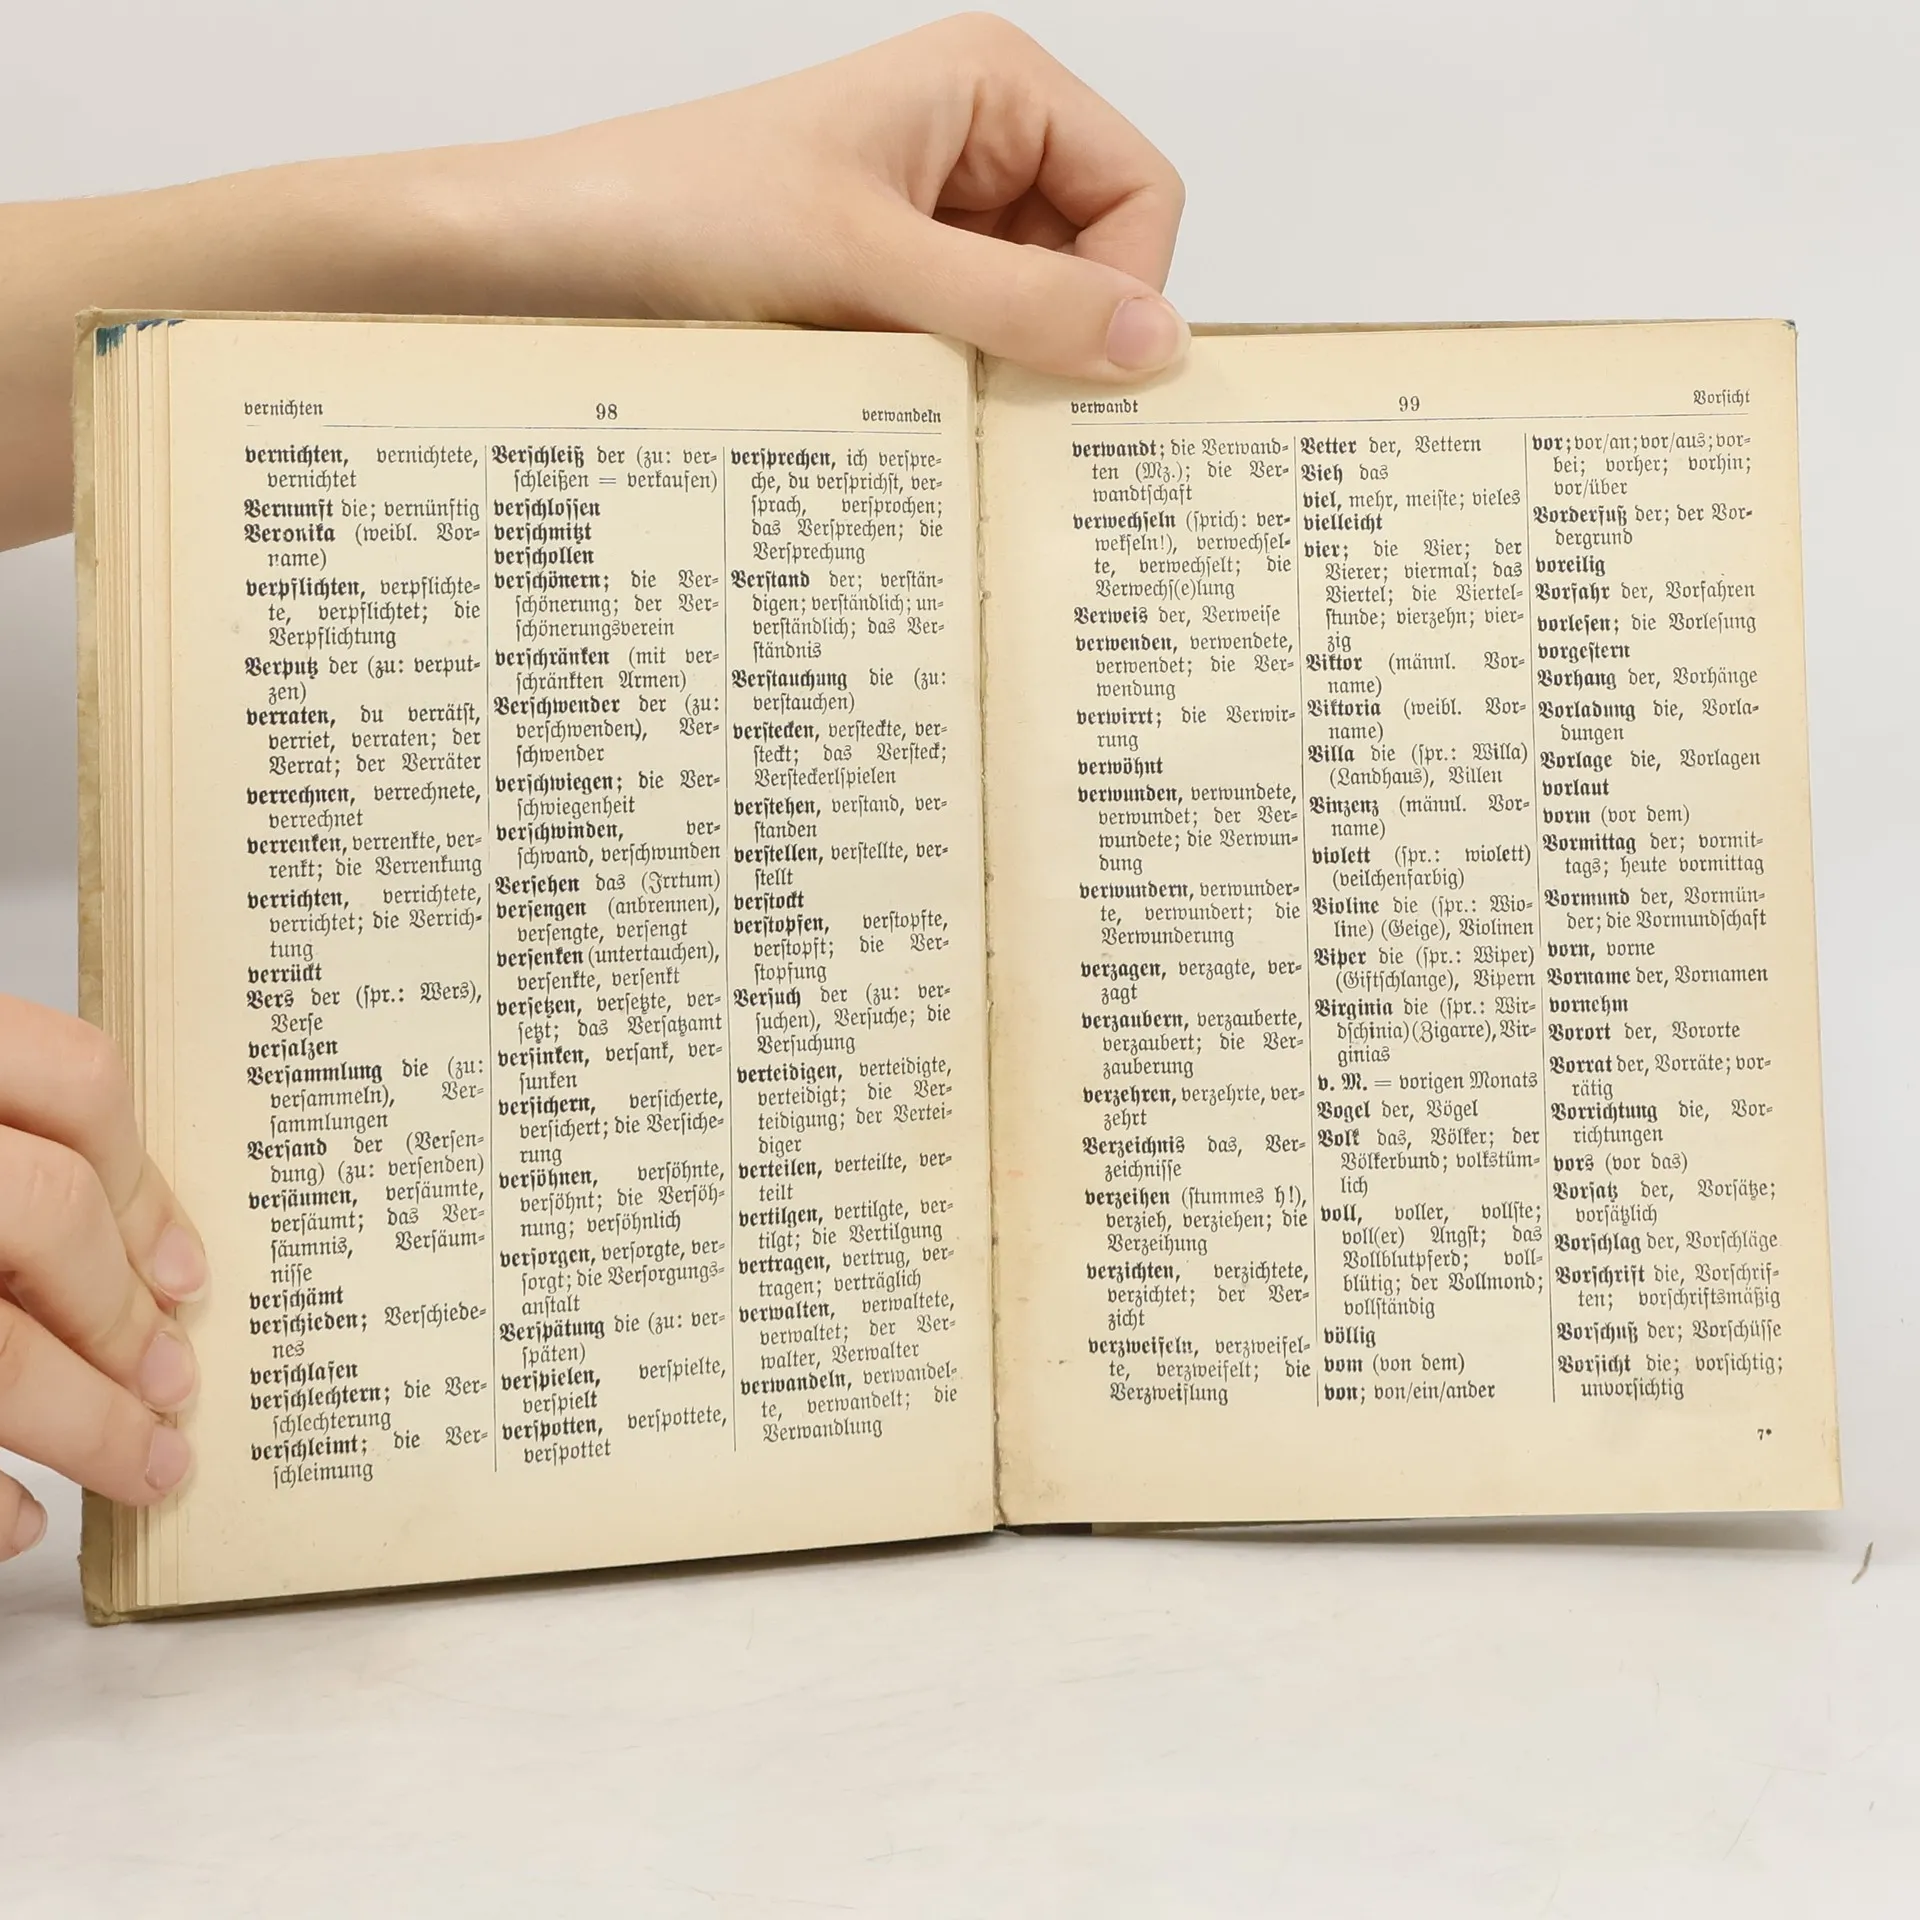 vernichten 98 verwandeln
vernichten, vernichtete,
vernichtet
Vernunft die; vernünftig
Veronika (weibl. Vor-
name)
verpflichten, verpflichte-
te, verpflichtet; die
Verpflichtung
Verputz der (zu: verput-
zen)
verraten, du verrätſt,
verriet, verraten; der
Verrat; der Verräter
verrechnen, verrechnete,
verrechnet
verrenken, verrenkte, ver-
renkt; die Verrenkung
verrichten, verrichtete,
verrichtet; die Verrich-
tung
verrückt
Vers der (ſpr.: Wers),
Verſe
verſalzen
Verſammlung die (zu:
verſammeln), Ver-
ſammlungen
Verſand der (Verſen-
dung) (zu: verſenden)
verſäumen, verſäumte,
verſäumt; das Ver-
ſäumnis, Verſäum-
niſſe
verſchämt
verſchieden; Verſchiede-
nes
verſchlafen
verſchlechtern; die Ver-
ſchlechterung
verſchleimt; die Ver-
ſchleimung
Verſchleiß der (zu: ver-
ſchleißen = verkaufen)
verſchloſſen
verſchmitzt
verſchollen
verſchönern; die Ver-
ſchönerung; der Ver-
ſchönerungsverein
verſchränken (mit ver-
ſchränkten Armen)
Verſchwender der (zu:
verſchwenden), Ver-
ſchwender
verſchwiegen; die Ver-
ſchwiegenheit
verſchwinden, ver-
ſchwand, verſchwunden
Verſehen das (Irrtum)
verſengen (anbrennen),
verſengte, verſengt
verſenken (untertauchen),
verſenkte, verſenkt
verſetzen, verſetzte, ver-
ſetzt; das Verſatzamt
verſinken, verſank, ver-
ſunken
verſichern, verſicherte,
verſichert; die Verſiche-
rung
verſöhnen, verſöhnte,
verſöhnt; die Verſöh-
nung; verſöhnlich
verſorgen, verſorgte, ver-
ſorgt; die Verſorgungs-
anſtalt
Verſpätung die (zu: ver-
ſpäten)
verſpielen, verſpielte,
verſpielt
verſpotten, verſpottete,
verſpottet
verſprechen, ich verſpre-
che, du verſprichſt, ver-
ſprach, verſprochen;
das Verſprechen; die
Verſprechung
Verſtand der; verſtän-
digen; verſtändlich; un-
verſtändlich; das Ver-
ſtändnis
Verſtauchung die (zu:
verſtauchen)
verſtecken, verſteckte, ver-
ſteckt; das Verſteck;
Verſteckerlſpielen
verſtehen, verſtand, ver-
ſtanden
verſtellen, verſtellte, ver-
ſtellt
verſtockt
verſtopfen, verſtopfte,
verſtopft; die Ver-
ſtopfung
Verſuch der (zu: ver-
ſuchen), Verſuche; die
Verſuchung
verteidigen, verteidigte,
verteidigt; die Ver-
teidigung; der Vertei-
diger
verteilen, verteilte, ver-
teilt
vertilgen, vertilgte, ver-
tilgt; die Vertilgung
vertragen, vertrug, ver-
tragen; verträglich
verwalten, verwaltete,
verwaltet; der Ver-
walter, Verwalter
verwandeln, verwandel-
te, verwandelt; die
Verwandlung
verwandt 99 Vorſicht
verwandt; die Verwand-
ten (Mz.); die Ver-
wandtſchaft
verwechſeln (ſprich: ver-
wekſeln!), verwechſel-
te, verwechſelt; die
Verwechſ(e)lung
Verweis der, Verweiſe
verwenden, verwendete,
verwendet; die Ver-
wendung
verwirrt; die Verwir-
rung
verwöhnt
verwunden, verwundete,
verwundet; der Ver-
wundete; die Verwun-
dung
verwundern, verwunder-
te, verwundert; die
Verwunderung
verzagen, verzagte, ver-
zagt
verzaubern, verzauberte,
verzaubert; die Ver-
zauberung
verzehren, verzehrte, ver-
zehrt
Verzeichnis das, Ver-
zeichniſſe
verzeihen (ſtummes h!),
verzieh, verziehen; die
Verzeihung
verzichten, verzichtete,
verzichtet; der Ver-
zicht
verzweifeln, verzweifel-
te, verzweifelt; die
Verzweiflung
Vetter der, Vettern
Vieh das
viel, mehr, meiſte; vieles
vielleicht
vier; die Vier; der
Vierer; viermal; das
Viertel; die Viertel-
ſtunde; vierzehn; vier-
zig
Viktor (männl. Vor-
name)
Viktoria (weibl. Vor-
name)
Villa die (ſpr.: Willa)
(Landhaus), Villen
Vinzenz (männl. Vor-
name)
violett (ſpr.: wiolett)
(veilchenfarbig)
Violine die (ſpr.: Wio-
line) (Geige), Violinen
Viper die (ſpr.: Wiper)
(Giftſchlange), Vipern
Virginia die (ſpr.: Wir-
dſchinia) (Zigarre), Vir-
ginias
v. M. = vorigen Monats
Vogel der, Vögel
Volk das, Völker; der
Völkerbund; volkstüm-
lich
voll, voller, vollſte;
voll(er) Angſt; das
Vollblutpferd; voll-
blütig; der Vollmond;
vollſtändig
völlig
vom (von dem)
von; von/ein/ander
vor; vor/an; vor/aus; vor-
bei; vorher; vorhin;
vor/über
Vorderfuß der; der Vor-
dergrund
voreilig
Vorfahr der, Vorfahren
vorleſen; die Vorleſung
vorgeſtern
Vorhang der, Vorhänge
Vorladung die, Vorla-
dungen
Vorlage die, Vorlagen
vorlaut
vorm (vor dem)
Vormittag der; vormit-
tags; heute vormittag
Vormund der, Vormün-
der; die Vormundſchaft
vorn, vorne
Vorname der, Vornamen
vornehm
Vorort der, Vororte
Vorrat der, Vorräte; vor-
rätig
Vorrichtung die, Vor-
richtungen
vors (vor das)
Vorſatz der, Vorſätze;
vorſätzlich
Vorſchlag der, Vorſchläge
Vorſchrift die, Vorſchrif-
ten; vorſchriftsmäßig
Vorſchuß der; Vorſchüſſe
Vorſicht die; vorſichtig;
unvorſichtig
7*